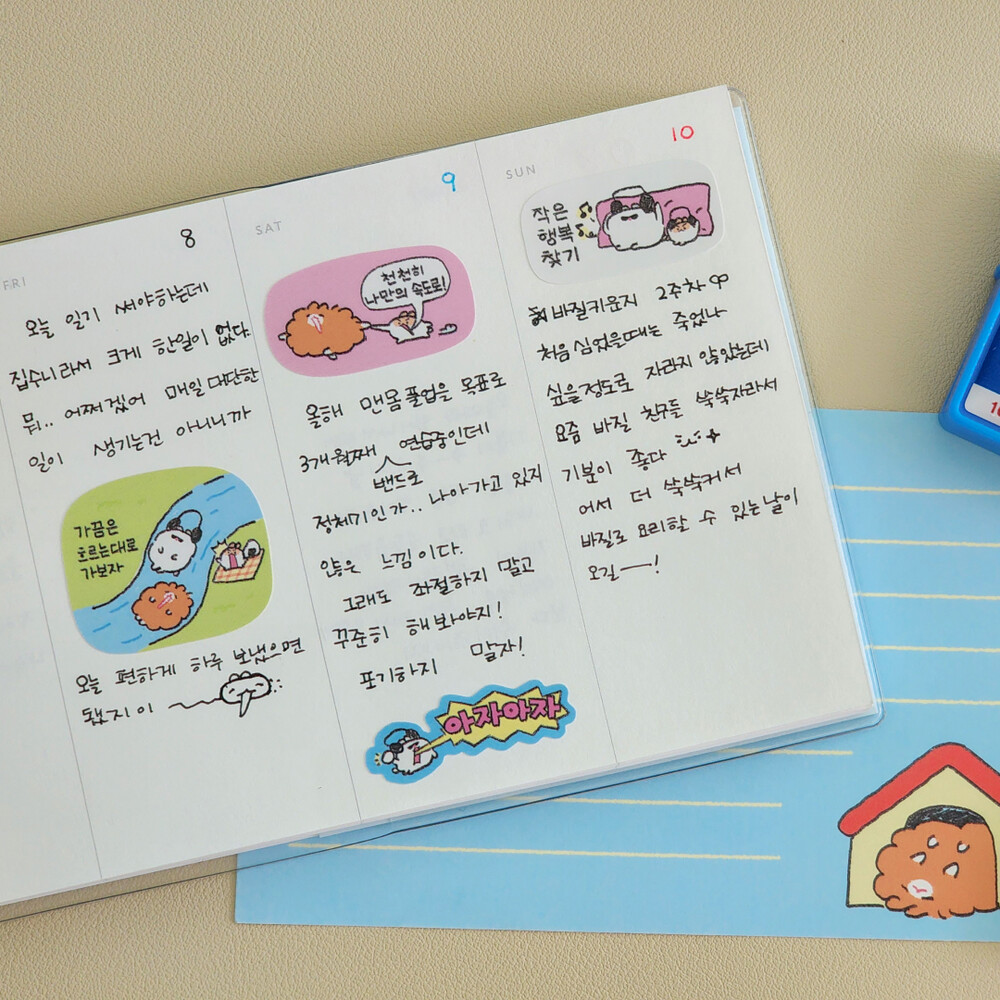 FRI
8
오늘 일기 써야하는데
집수니라서 크게 한일이 없다.
뭐.. 어쩌겠어 매일 대단한
일이 생기는건 아니니까
가끔은
흐르는대로
가보자
오늘 편하게 하루 보냈으면
됐지 이
SAT
9
천천히
나만의 속도로!
올해 맨몸풀업을 목표로
3개월째 연습중인데
밴드로
정체기인가.. 나아가고 있지
않은 느낌이다.
그래도 좌절하지 말고
꾸준히 해봐야지!
포기하지 말자!
아자아자
SUN
10
작은
행복
찾기
바질키운지 2주차
처음 심었을때는 죽었나
싶을정도로 자라지 않았는데
요즘 바질 친구들 쑥쑥자라서
기분이 좋다
어서 더 쑥쑥커서
바질로 요리할 수 있는날이
오길—!